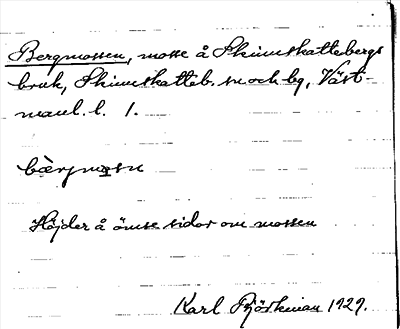 Bergmossen, mosse å Skinnskattebergs
bruk, Skinnskatteb. sn och bg, Väst-
manl. l. 1.
bærjmosn
Höjder å ömse sidor om mossen
Karl Björkman 1929.